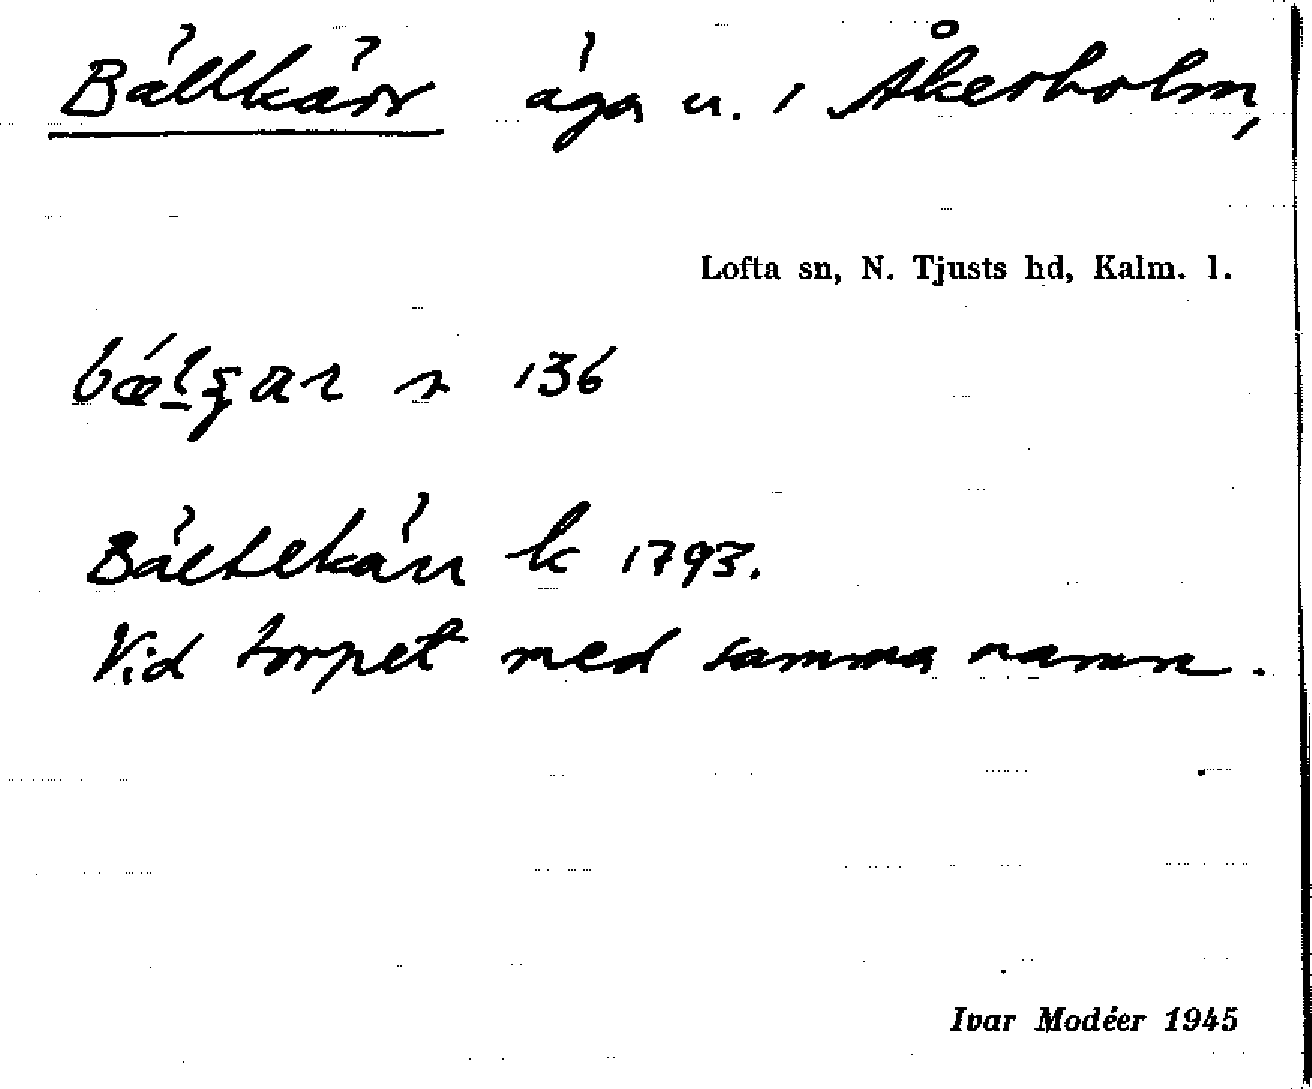 Bällkärr äga u. i Åkerholm,
Lofta sn, N. Tjusts hd, Kalm. l.
136
Bältekärr k 1793.
Vid torpet med samma namn.
Ivar Modéer 1945